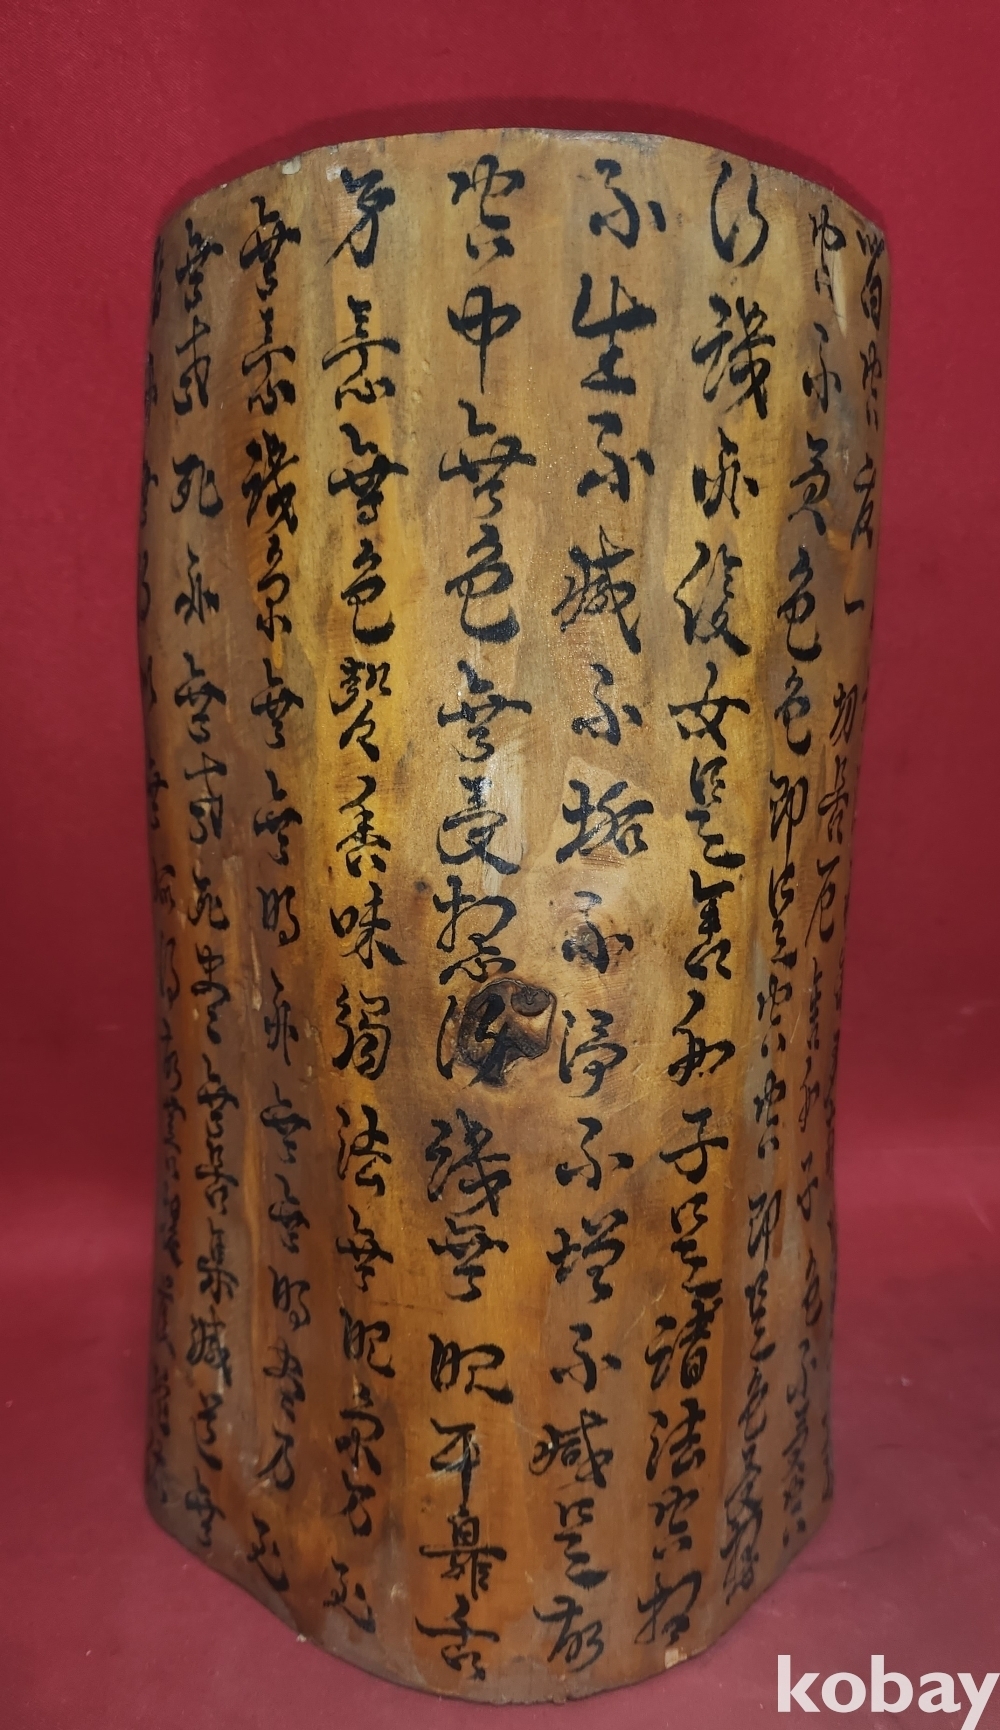 皆空度一切苦厄舍利子色不異空
空不異色色即是空空即是色受想
行識亦復如是舍利子是諸法空相
不生不滅不垢不淨不增不減是故
空中無色無受想行識無眼耳鼻舌
身意無色聲香味觸法無眼界乃至
無意識界無無明亦無無明盡乃至
無老死亦無老死盡無苦集滅道無
智亦無得以無所得故
kobay